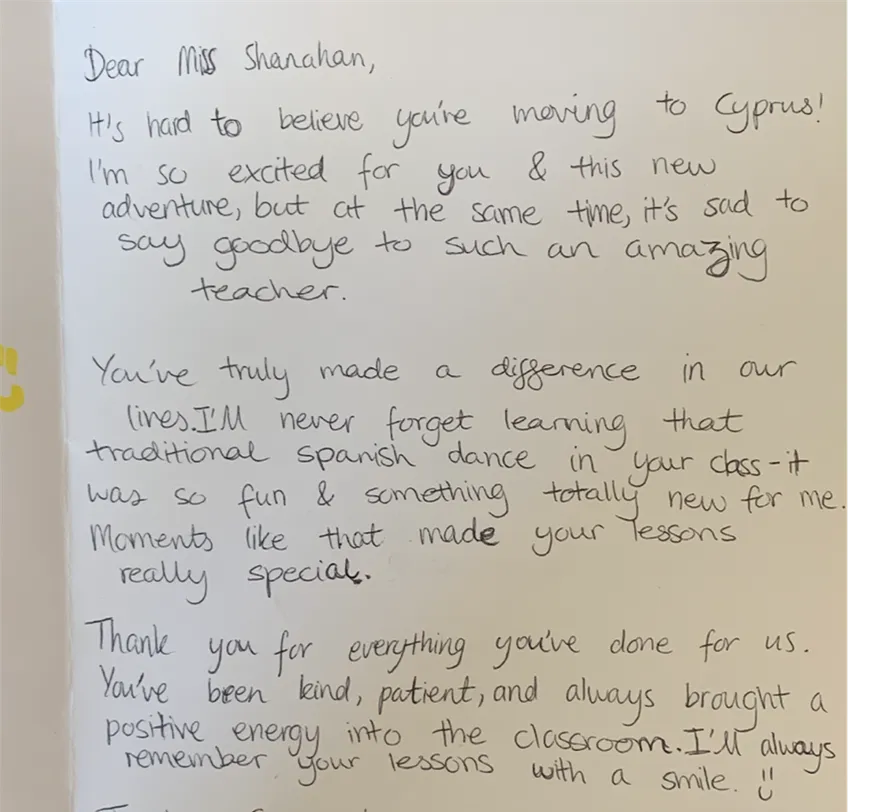 Dear Miss Shanahan,
It's hard to believe you're moving to Cyprus!
I'm so excited for you & this new
adventure, but at the same time, it's sad to
say goodbye to such an amazing
teacher.
You've truly made a difference in our
lives. I'll never forget learning that
traditional spanish dance in your class - it
was so fun & something totally new for me.
Moments like that made your lessons
really special.
Thank you for everything you've done for us.
You've been kind, patient, and always brought a
positive energy into the classroom. I'll always
remember your lessons with a smile. :)